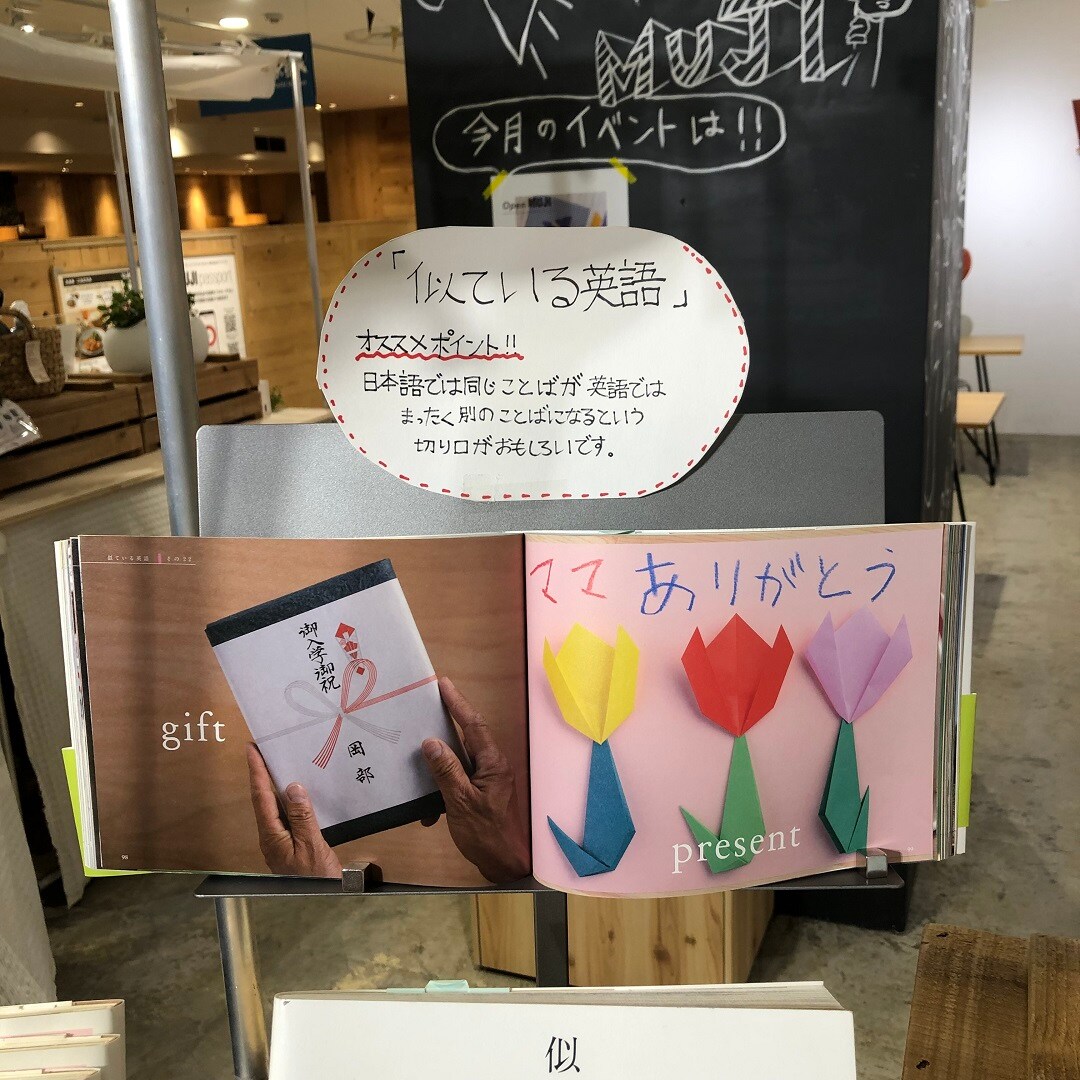 MUJI
今月のイベントは!!
Open MUJI
「似ている英語」
オススメポイント!!
日本語では同じことばが英語では
まったく別のことばになるという
切り口がおもしろいです。
似ている英語 その22
御入学御祝
岡部
gift
98
ママ ありがとう
present
似